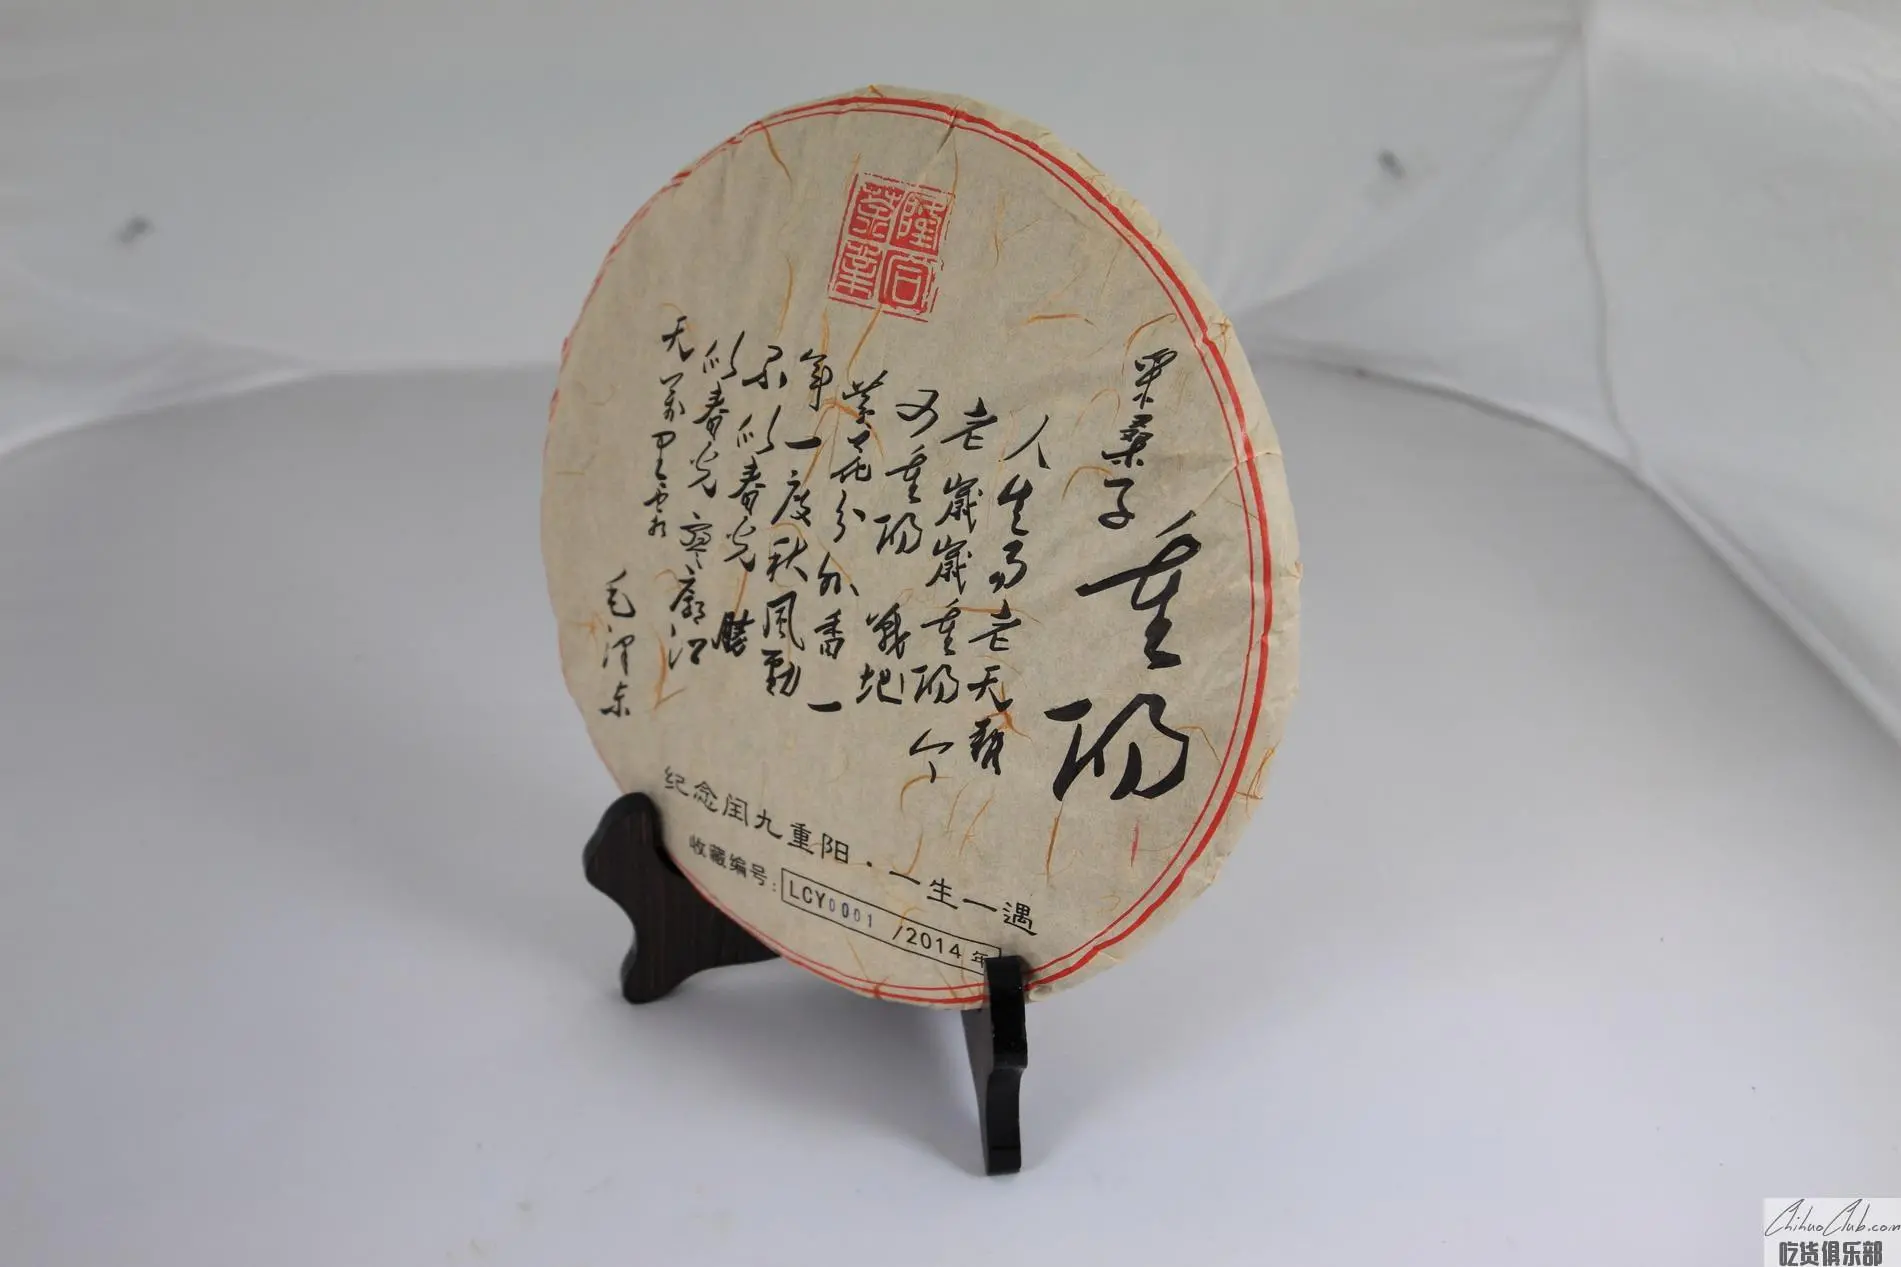 隆
茶業
采桑子 重陽
人生易老天難
老歲歲重陽今
又重陽戰地
黄花分外香一
年一度秋風勁
不似春光勝
似春光寥廓江
天萬里霜
毛澤東
纪念闰九重阳·一生一遇
收藏编号:LCY0001 /2014年
ChihuoClub.com
吃货俱乐部